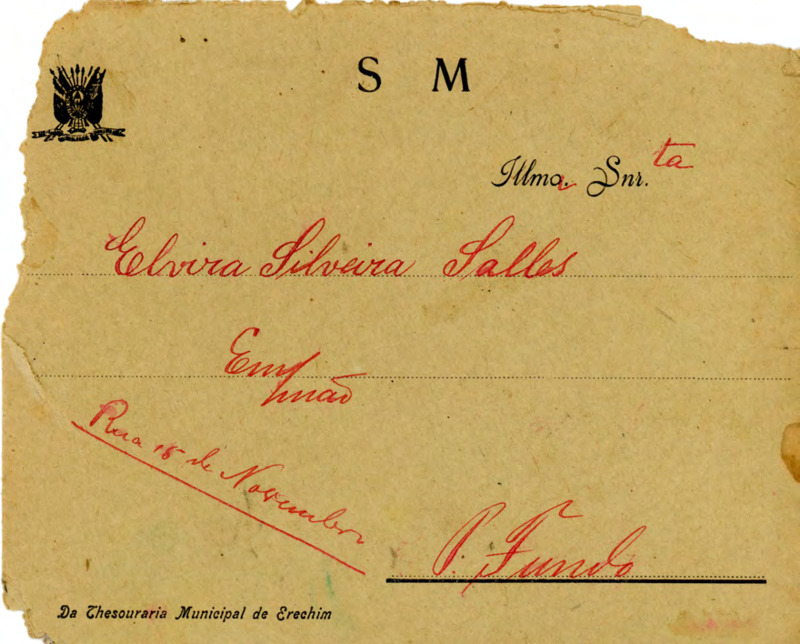 S M
Illmo. Snr.ta
Elvira Silveira Salles
Em mão
Rua 15 de Novembro
P. Fundo
Da Thesouraria Municipal de Erechim